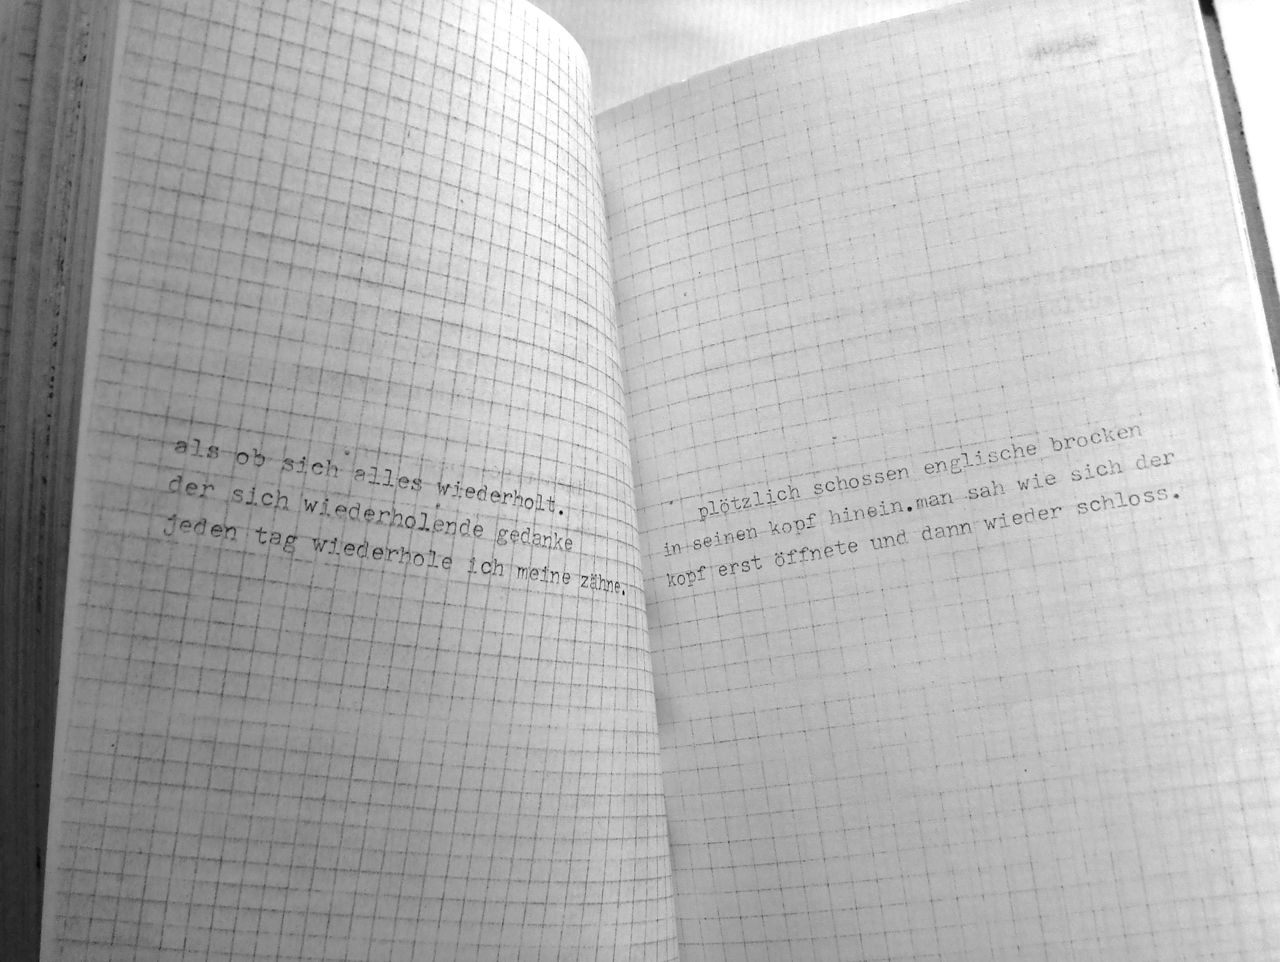 als ob sich alles wiederholt.
der sich wiederholende gedanke
jeden tag wiederhole ich meine zähne.
plötzlich schossen englische brocken
in seinen kopf hinein.man sah wie sich der
kopf erst öffnete und dann wieder schloss.